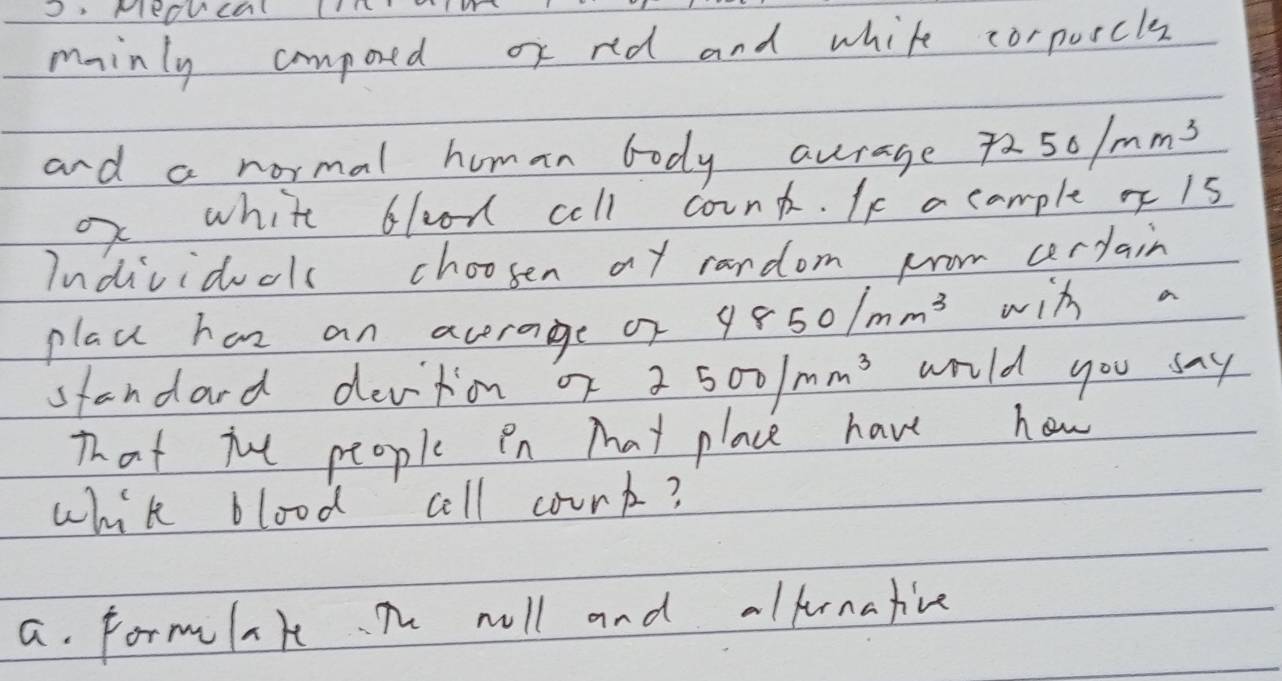 3. Medical
mainly compored of red and white corpuscles
and a normal human body average 7250/mm³
of white blood cell counts. If a sample of 15
Individuals choosen at random from certain
place has an average of 4850/mm³ with a
standard devition of 2500/mm³ would you say
That the people in that place have how
white blood cell counts?
a. Formulate the null and alternative